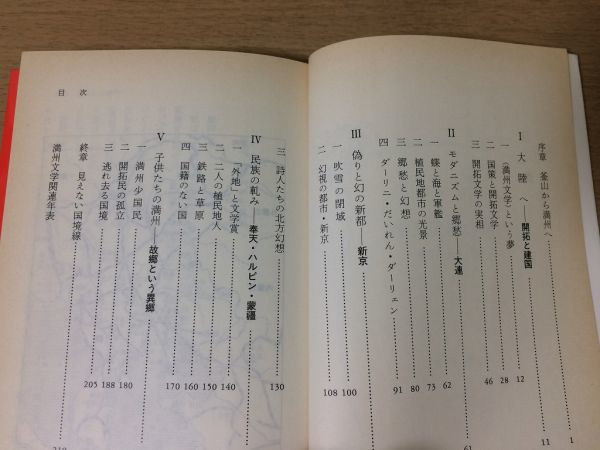 序章 釜山から満州へ 1
I 大陸へ——開拓と建国 11
一 〈満州文学〉という夢 12
二 国策と開拓文学 28
三 開拓文学の実相 46
II モダニズムと郷愁——大連 61
一 蝶と海と軍艦 62
二 植民地都市の光景 73
三 郷愁と幻想 80
四 ダーリニ・だいれん・ダーリェン 91
III 偽りと幻の新都——新京
一 吹雪の閉域 100
二 幻視の都市・新京 108
目次
三 詩人たちの北方幻想 130
IV 民族の軋み——奉天・ハルビン・蒙疆
一 「外地」と文学賞 140
二 二人の植民地人 150
三 鉄路と草原 160
四 国籍のない国 170
V 子供たちの満州——故郷という異郷
一 満州少国民 180
二 開拓民の孤立 188
三 逃れ去る国境 205
終章 見えない国境線
満州文学関連年表